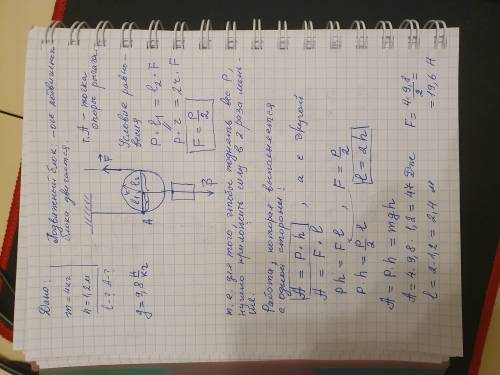 Дано:
m = 4 кг
h = 1,2 м
l - ? A - ?
g = 9,8 Н/кг
Подвижный блок - ось
блока двигается.
F
l₂
l₁
A
P
т. A - точка
опоры рычага.
Условие равно-
весия
P · l₁ = l₂ · F
P · r = 2r · F
F = P/2
т.е. для того, чтобы поднять вес P,
нужно приложить силу в 2 раза мень-
ше.
Работа, которая выполняется
с одной стороны:
A = P · h, а с другой
A = F · l
Ph = Fl, F = P/2
P · h = P/2 · l
l = 2h
A = P · h = mgh
A = 4 · 9,8 · 1,2 = 47 Дж
l = 2 · 1,2 = 2,4 м
F = 4 · 9,8 / 2 =
= 19,6 Н